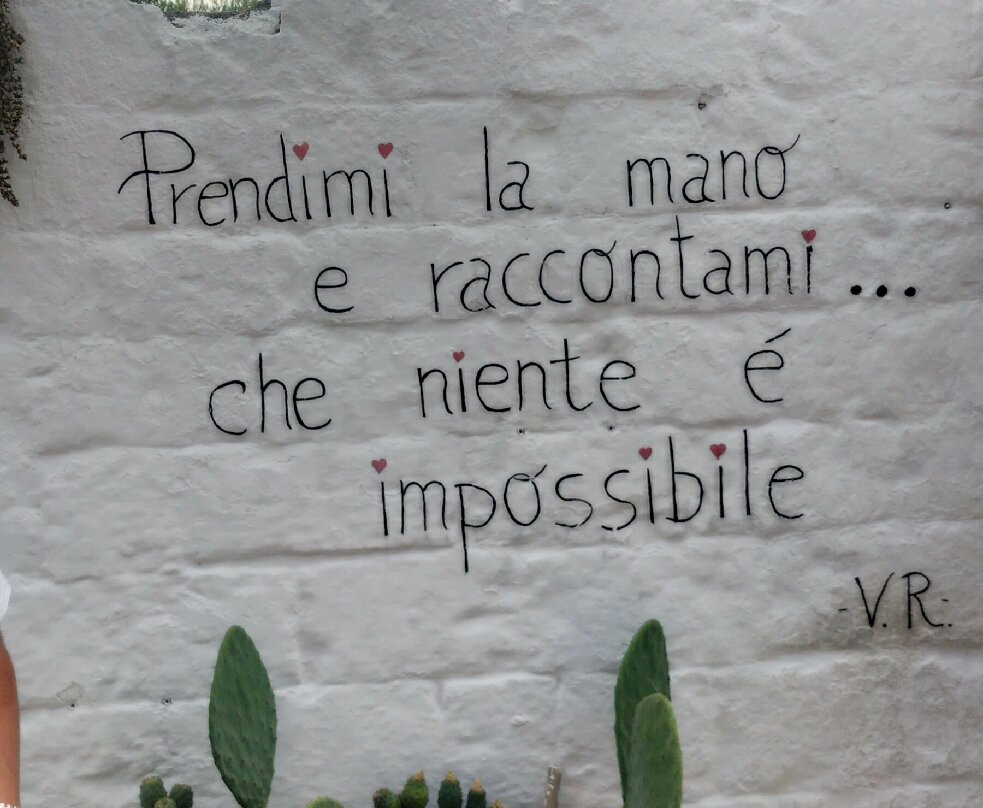 Prendimi la mano
e raccontami...
che niente é
impossibile
-V.R-